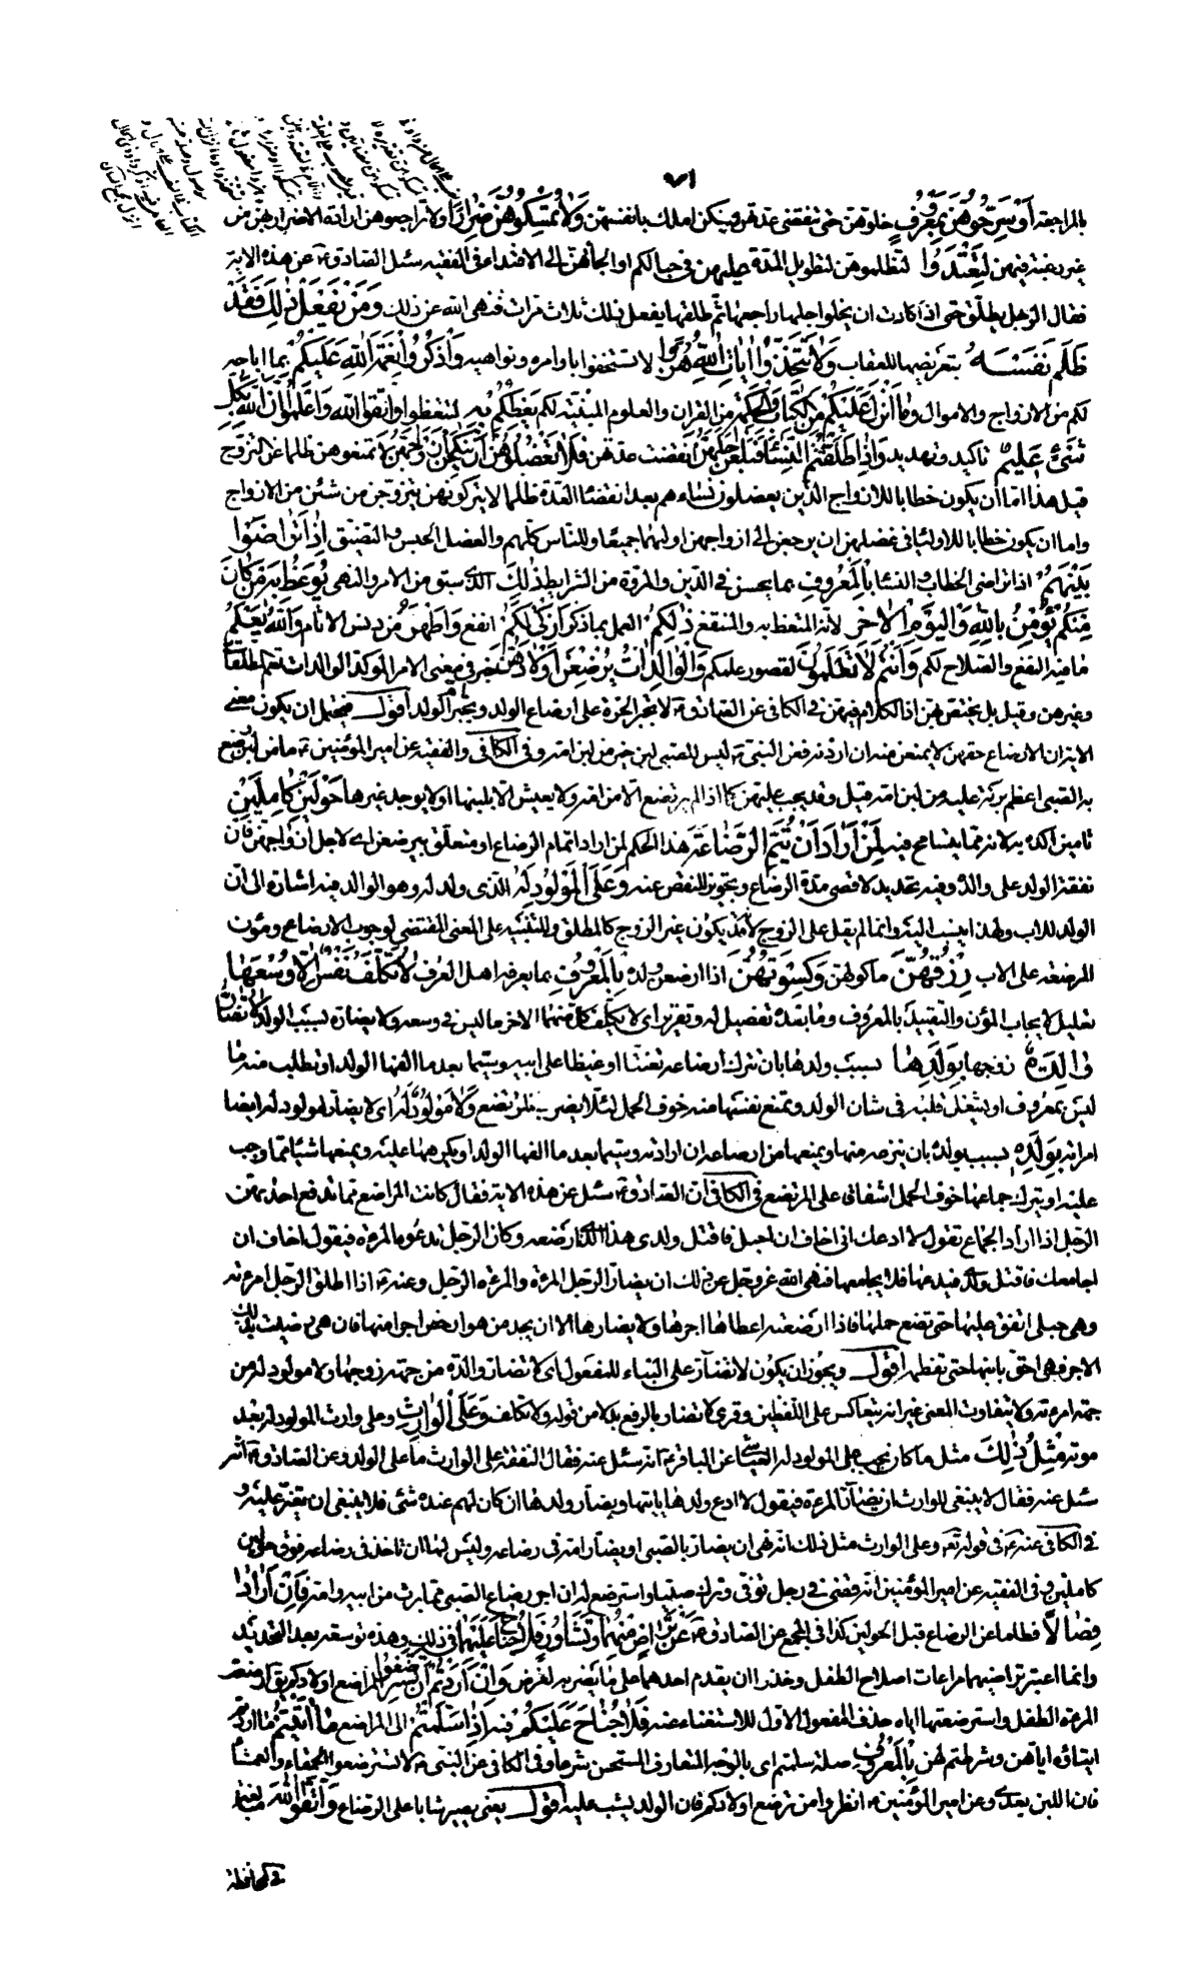 ٧١
بالمراجعة أَوْ سَرِّحُوهُنَّ بِمَعْرُوفٍ خلوهن حتى تنقضي عدتهن فيكن املك بانفسهن وَلَا تُمْسِكُوهُنَّ ضِرَارًا ولا تراجعوهن ارادة الاضرار بهن من
غير رغبة فيهن لِتَعْتَدُوا لتظلموهن بتطويل المدة عليهن في حبالكم او الجائهن الى الافتداء في الفقيه سئل الصادق ع عن هذه الاية
فقال الرجل يطلق حتى اذا كادت ان يخلوا جلها راجعها ثم طلقها يفعل ذلك ثلاث مرات فنهى الله عن ذلك وَمَنْ يَفْعَلْ ذٰلِكَ فَقَدْ
ظَلَمَ نَفْسَهُ بتعريضها للعقاب وَلَا تَتَّخِذُوا آيَاتِ اللّٰهِ هُزُوًا لا تستخفوا باوامره ونواهيه وَاذْكُرُوا نِعْمَةَ اللّٰهِ عَلَيْكُمْ بما اباحه
لكم من الازواج والاموال وَمَا أَنْزَلَ عَلَيْكُمْ مِنَ الْكِتَابِ وَالْحِكْمَةِ من القران والعلوم المبينة لكم يَعِظُكُمْ بِهِ لتتعظوا وَاتَّقُوا اللّٰهَ وَاعْلَمُوا أَنَّ اللّٰهَ بِكُلِّ
شَيْءٍ عَلِيمٌ تاكيد وتهديد وَإِذَا طَلَّقْتُمُ النِّسَاءَ فَبَلَغْنَ أَجَلَهُنَّ انقضت عدتهن فَلَا تَعْضُلُوهُنَّ أَنْ يَنْكِحْنَ أَزْوَاجَهُنَّ لا تمنعوهن ظلما عن التزوج
قيل هذا اما ان يكون خطابا للازواج الذين يعضلون نساءهم بعد انقضاء العدة ظلما لا يتركونهن يتزوجن من شئن من الازواج
واما ان يكون خطابا للاولياء في عضلهن ان يرجعن الى ازواجهن او لهما جميعا وللناس كلهم والعضل الحبس والتضييق إِذَا تَرَاضَوْا
بَيْنَهُمْ اذا تراضى الخطاب والنساء بِالْمَعْرُوفِ بما يحسن في الدين والمروة من الشرايط ذٰلِكَ الذي سبق من الامر والنهي يُوعَظُ بِهِ مَنْ كَانَ
مِنْكُمْ يُؤْمِنُ بِاللّٰهِ وَالْيَوْمِ الْآخِرِ لانه المتعظ به والمنتفع ذٰلِكُمْ العمل بما ذكر أَزْكىٰ لَكُمْ انفع وَأَطْهَرُ من دنس الاثام وَاللّٰهُ يَعْلَمُ
ما فيه النفع والصلاح لكم وَأَنْتُمْ لَا تَعْلَمُونَ لقصور علمكم وَالْوَالِدَاتُ يُرْضِعْنَ أَوْلَادَهُنَّ خبر في معنى الامر الموكد الوالدات تعم المطلقات
وغيرهن وقيل بل يختص بهن اذ الكلام فيهن في الكافي عن الصادق ع لا تجبر الحرة على ارضاع الولد وتجبر ام الولد اقول فيحتمل ان يكون معنى
الاية ان الارضاع حقهن لا يمنعن منه ان اردنه فعن النبي ص ليس للصبي لبن خير من لبن امه وفي الكافي والفقيه عن امير المؤمنين ع ما من لبن رضع
به الصبي اعظم بركة عليه من لبن امه قيل وقد يجب عليهن كما اذا لم يرتضع الا من امه ولا يعيش الا بلبنها او لا يوجد غيرها حَوْلَيْنِ كَامِلَيْنِ
تامين اكده به لانه مما يتسامح فيه لِمَنْ أَرَادَ أَنْ يُتِمَّ الرَّضَاعَةَ هذا الحكم لمن اراد اتمام الرضاع او متعلق بيرضعن اي لاجل ازواجهن فان
نفقة الولد على والده وفيه تحديد لاقصى مدة الرضاع وتجويز للنقص عنه وَعَلَى الْمَوْلُودِ لَهُ الذي ولد له وهو الوالد فيه اشارة الى ان
الولد للاب ولهذا ينسب اليه وانما لم يقل على الزوج لانه قد يكون غير الزوج كالمطلق وللتنبيه على المعنى المقتضي لوجوب الارضاع ومؤن
المرضعة على الاب رِزْقُهُنَّ ماكولهن وَكِسْوَتُهُنَّ اذا ارضعن ولده بِالْمَعْرُوفِ بما يعرفه اهل العرف لَا تُكَلَّفُ نَفْسٌ إِلَّا وُسْعَهَا
تعليل لايجاب المؤن والتقييد بالمعروف وما بعده تفصيل له وتقرير اي لا يكلف كل منهما الاخر ما ليس في وسعه ولا يضاره بسبب الولد لَا تُضَارَّ
وَالِدَةٌ زوجها بِوَلَدِهَا بسبب ولدها بان تترك ارضاعه تعنتا او غيظا على ابيه وسيما بعد ما الفها الولد او تطلب منه ما
ليس بمعروف او يشغل قلبه في شان الولد وتمنع نفسها منه خوف الحمل لئلا يضر بالمرتضع وَلَا مَوْلُودٌ لَهُ اي لا يضار المولود له ايضا
امراته بِوَلَدِهِ بسبب ولده بان ينزعه منها ويمنعها من ارضاعه ان ارادته وسيما بعد ما الفها الولد او يكرهها عليه ويمنعها شيئا مما وجب
عليه او يترك جماعها خوف الحمل اشفاقا على المرتضع في الكافي ان الصادق ع سئل عن هذه الاية فقال كانت المراضع مما تدفع احديهن
الرجل اذا اراد الجماع تقول لا ادعك اني اخاف ان احبل فاقتل ولدي هذا الذي ارضعه وكان الرجل تدعوه المرءة فيقول اخاف ان
اجامعك فاقتل ولدي فيدعها فلا يجامعها فنهى الله عز وجل عن ذلك ان يضار الرجل المرءة والمرءة الرجل وعنه ع اذا اطلق الرجل امرءته
وهي حبلى انفق عليها حتى تضع حملها فاذا ارضعته اعطاها اجرها ولا يضارها الا ان يجد من هو ارخص اجرا منها فان هي رضيت بذلك
الاجر فهي احق بابنها حتى تفطمه اقول ويجوز ان يكون لا تضار على البناء للمفعول اي لا تضار والدة من جهة زوجها ولا مولود له من
جهة امرءته ولا يتفاوت المعنى غير انه يتعاكس على اللفظين وقرئ لا تضار بالرفع بدلا من قوله ولا تكلف وَعَلَى الْوَارِثِ وعلى وارث المولود له بعد
موته مِثْلُ ذٰلِكَ مثل ما كان يجب على المولود له العياشي عن الباقر ع انه سئل عنه فقال النفقة على الوارث ما على الولد وعن الصادق ع انه
سئل عنه فقال لا ينبغي للوارث ان يضار المرءة فيقول لا ادع ولدها ياتيها ويضار ولدها ان كان لهم عنده شئ فلا ينبغي ان يقتر عليه و
في الكافي عنه ع في قوله تع وعلى الوارث مثل ذلك انه نهى ان يضار بالصبي او يضار امه في رضاعه وليس لها ان تاخذ في رضاعه فوق حولين
كاملين وفي الفقيه عن امير المؤمنين انه قضى في رجل توفى وترك صبيا واسترضع له ان اجر رضاع الصبي مما يرث من ابيه وامه فَإِنْ أَرَادَا
فِصَالًا فطاما عن الرضاع قبل الحولين كذا في المجمع عن الصادق ع عَنْ تَرَاضٍ مِنْهُمَا وَتَشَاوُرٍ فَلَا جُنَاحَ عَلَيْهِمَا في ذلك وهذه توسعة بعد التحديد
وانما اعتبر تراضيهما مراعات اصلاح الطفل وحذرا ان يقدم احدهما على ما يضر به لغرض وَإِنْ أَرَدْتُمْ أَنْ تَسْتَرْضِعُوا المراضع اولادكم يقال ارضعت
المرءة الطفل واسترضعتها اياه حذف المفعول الاول للاستغناء عنه فَلَا جُنَاحَ عَلَيْكُمْ فيه إِذَا سَلَّمْتُمْ الى المراضع مَا آتَيْتُمْ ما اردتم
ايتاءه اياهن وشرطتم لهن بِالْمَعْرُوفِ صلة سلمتم اي بالوجه المتعارف المستحسن شرعا وفي الكافي عن النبي ص لا تسترضعوا الحمقاء والعمشاء
فان اللبن يعدي وعن امير المؤمنين ع انظروا من ترضع اولادكم فان الولد يشب عليه اقول يعني يصير شابا على الرضاع وَاتَّقُوا اللّٰهَ مبالغة
في المحافظة